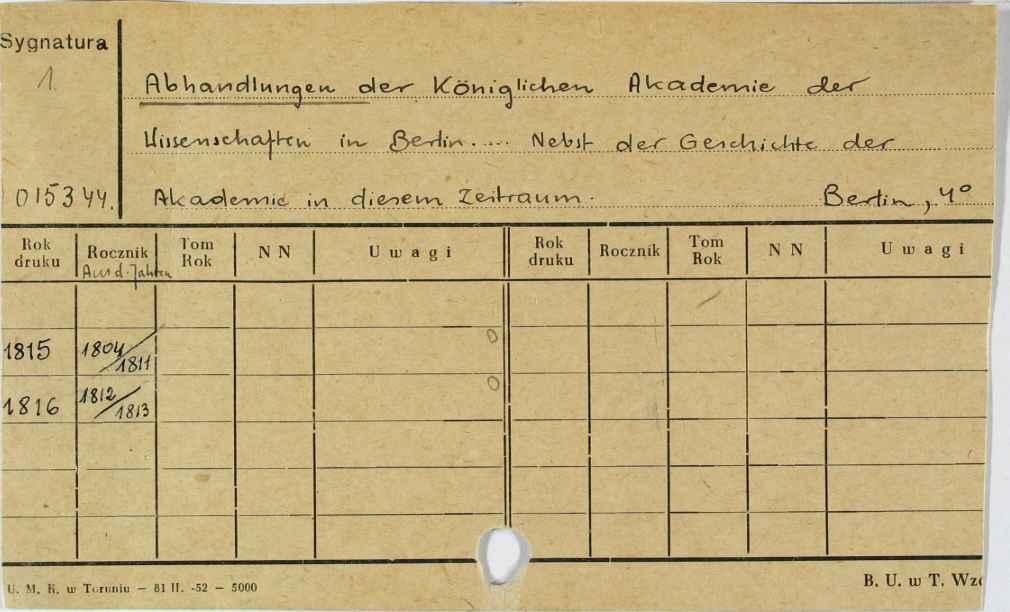 Sygnatura
1.
015344.
Abhandlungen der Königlichen Akademie der
Wissenschaften in Berlin.... Nebst der Geschichte der
Akademie in diesem Zeitraum. Berlin, 4°
Rok druku Rocznik Tom Rok NN Uwagi Rok druku Rocznik Tom Rok NN Uwagi
Aus d. Jahren
1815 1804/1811 0
1816 1812/1813 0
U. M. K. w Toruniu – 81 II. -52 – 5000
B. U. w T. Wzo